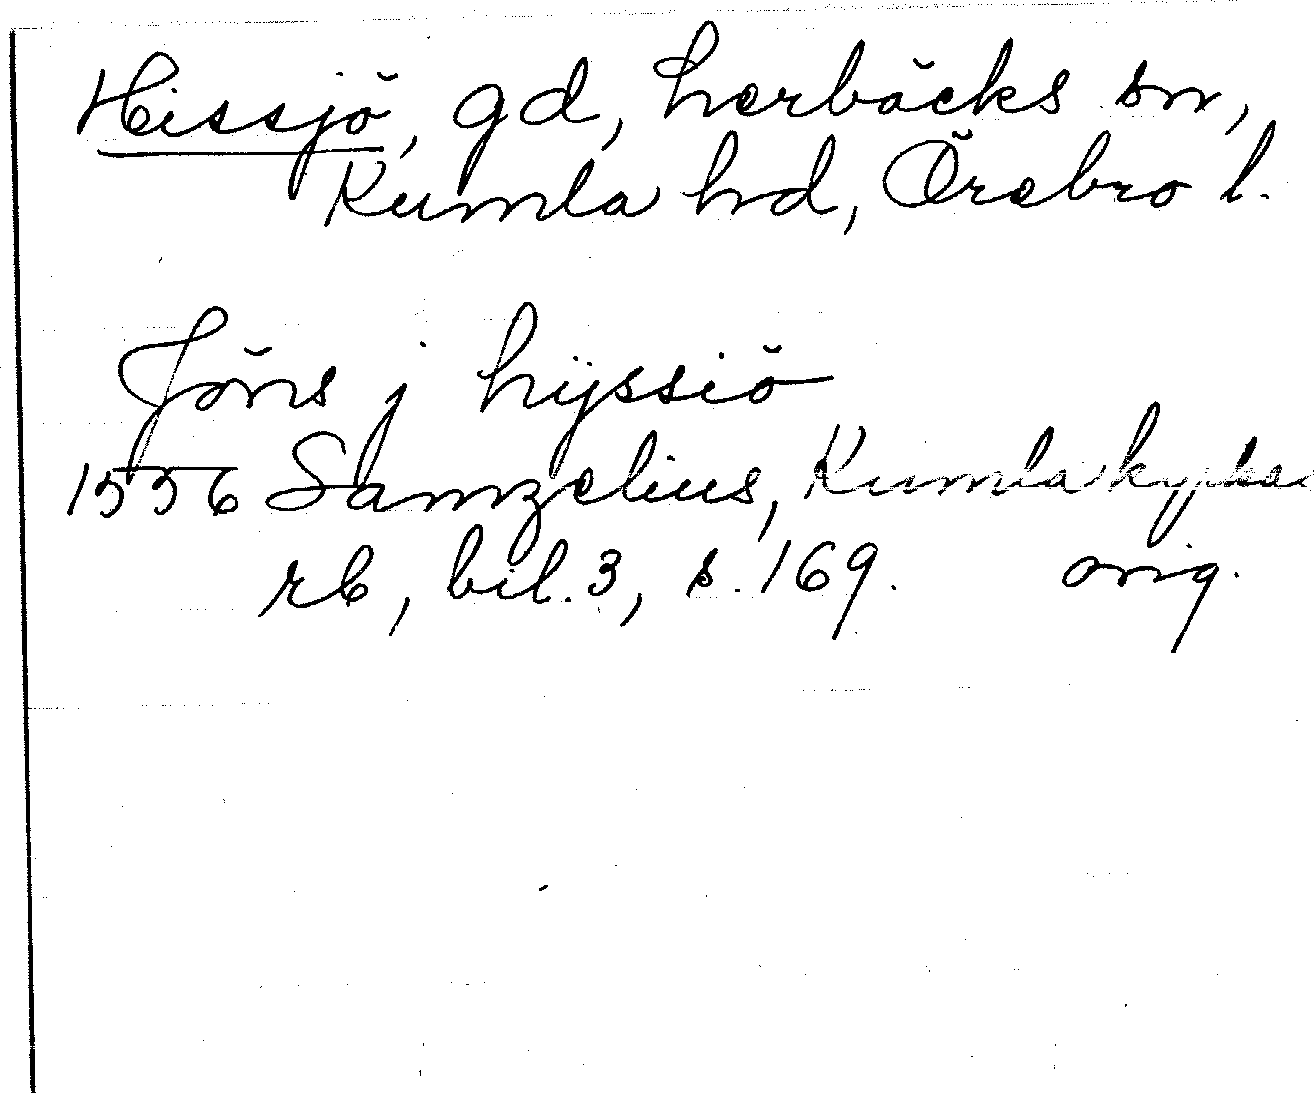 Hissjö, gd, Lerbäcks sn,
Kumla hd, Örebro l.
Jöns j hÿssiö
1556 Samzelius, Kumla kyrkas
rb, bil. 3, s. 169. orig.